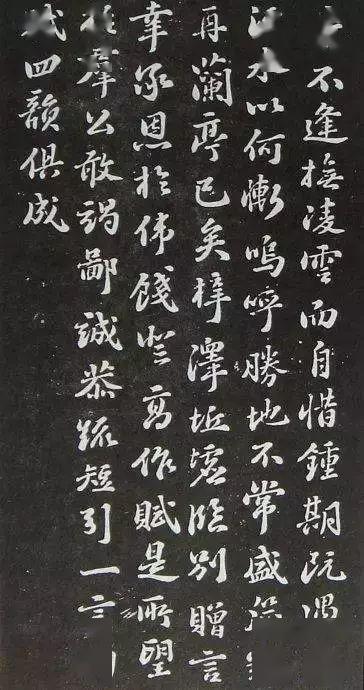 不逢撫凌雲而自惜鍾期既遇
水以何慚嗚呼勝地不常盛
再蘭亭已矣梓澤坵墟臨別贈言
幸承恩於偉餞登高作賦是所望
於羣公敢竭鄙誠恭疏短引一言
四韻俱成